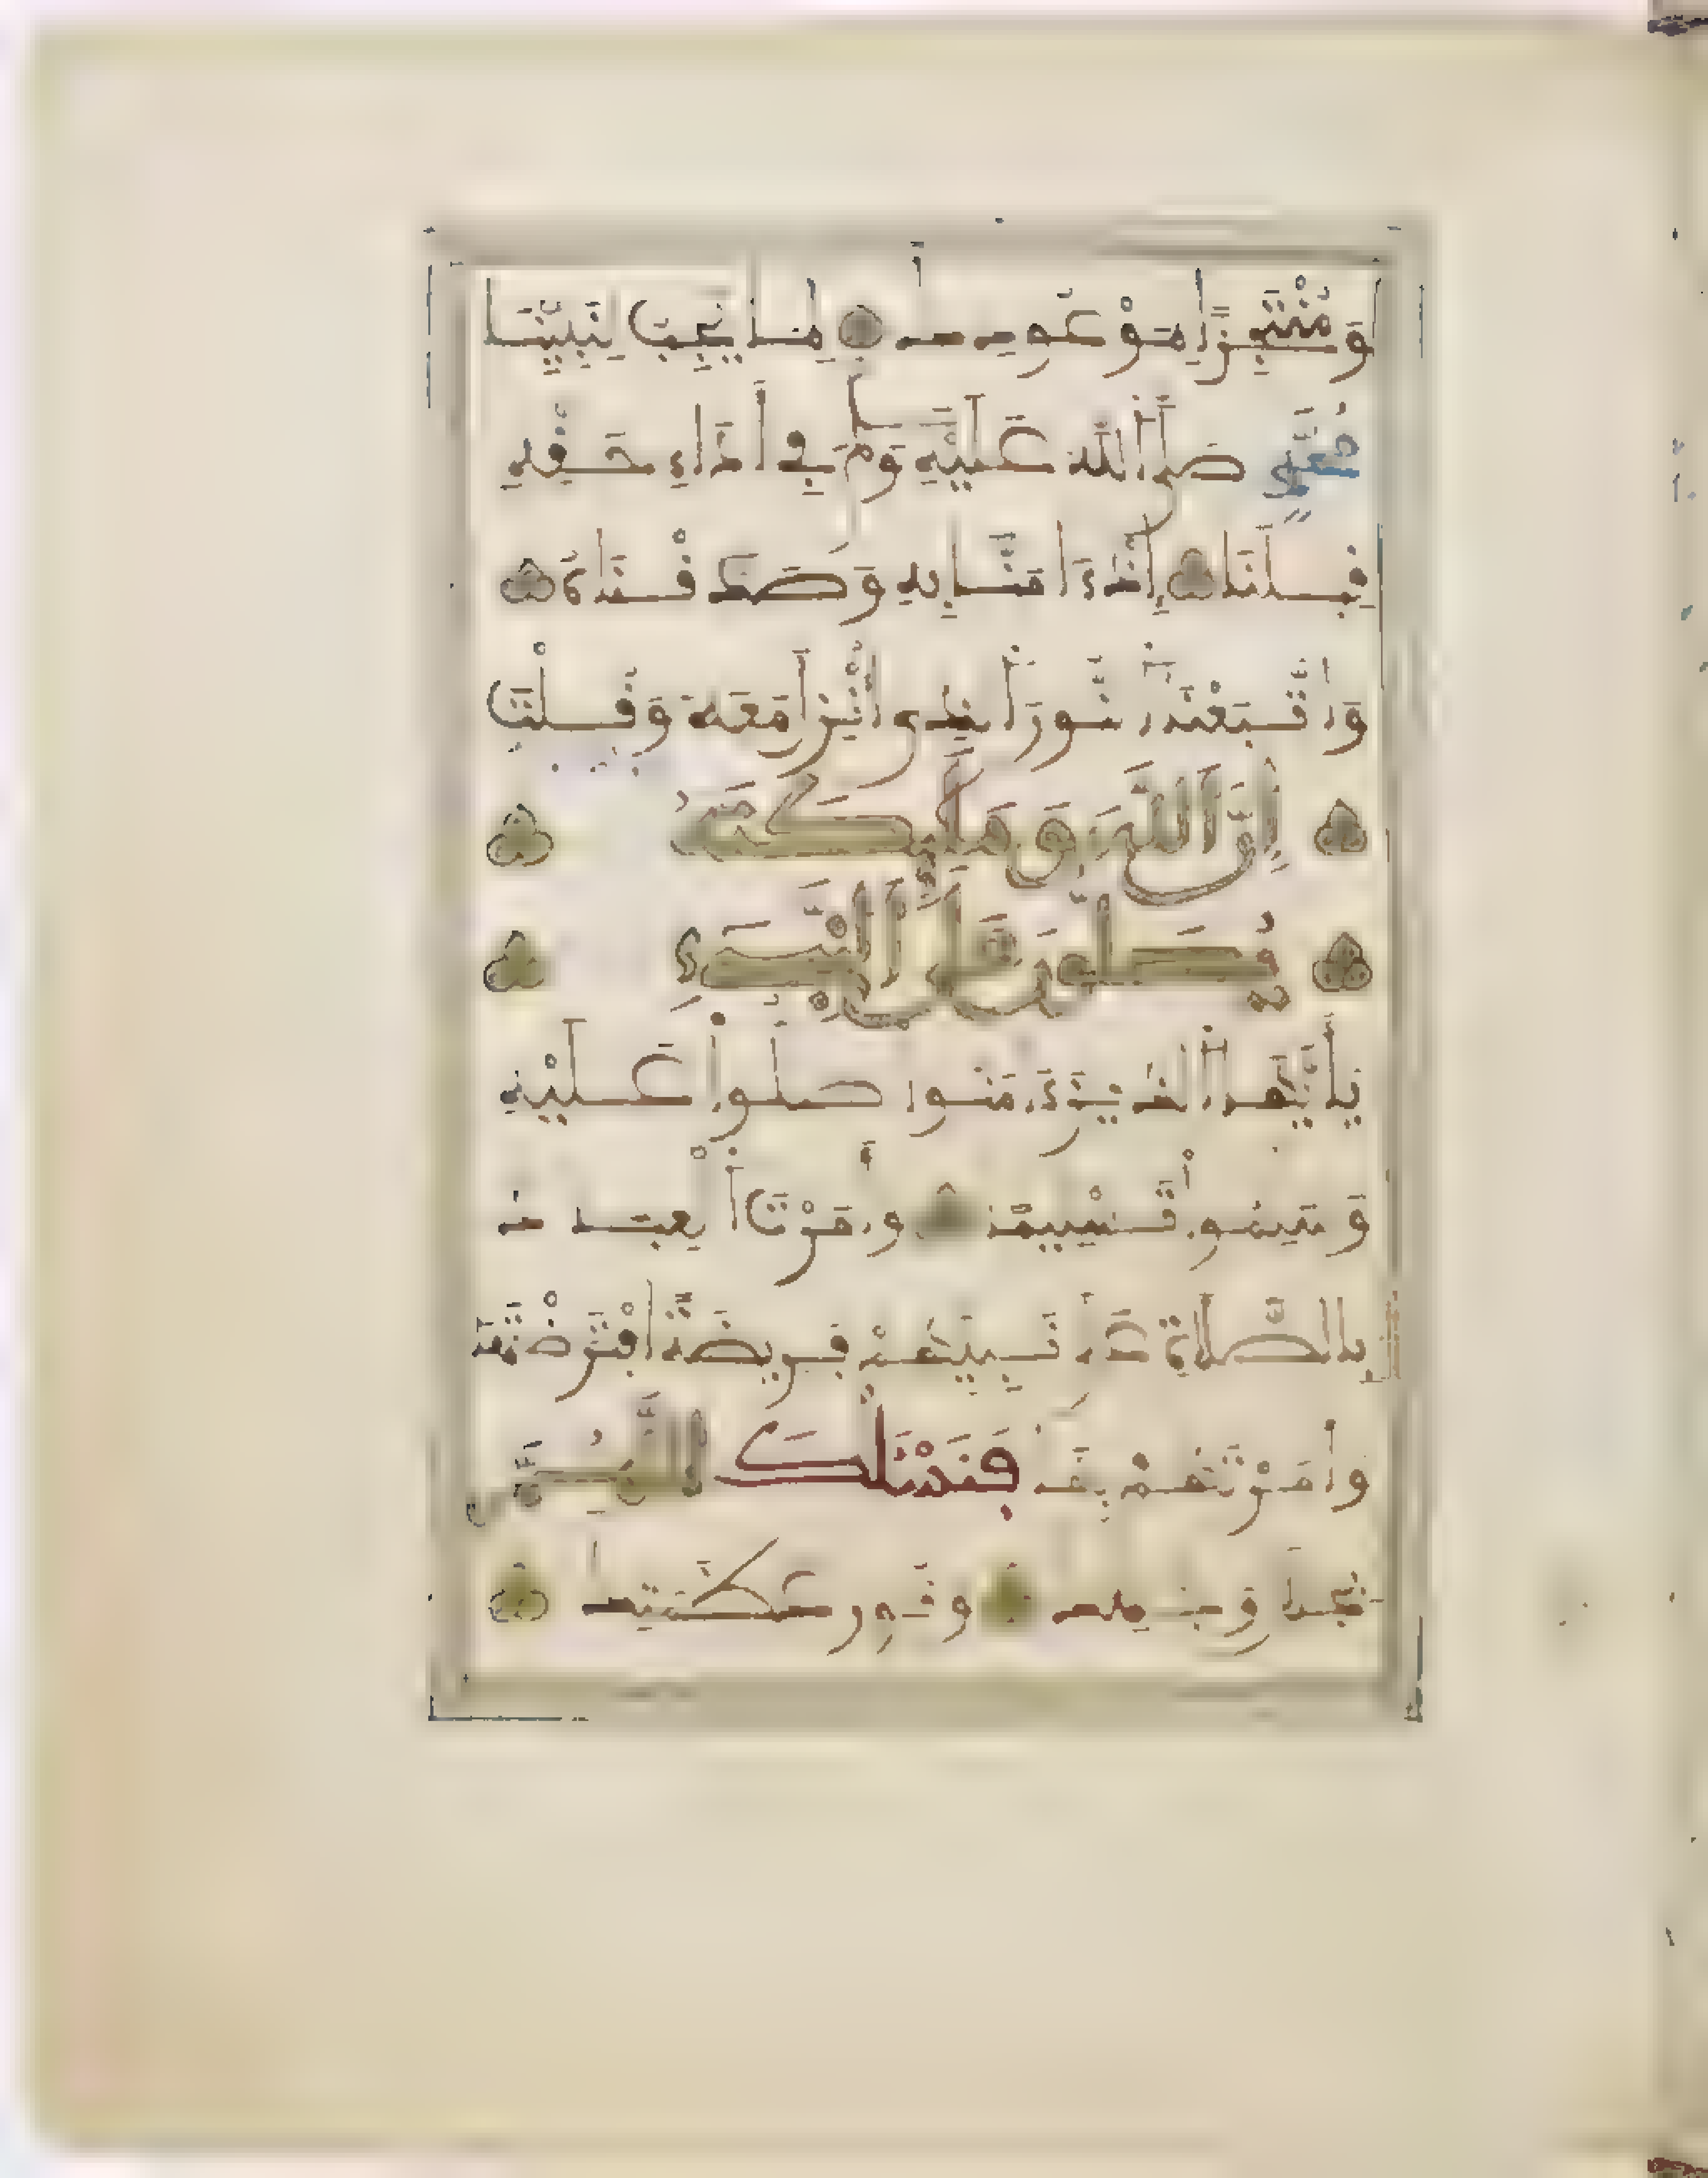 وَمُنْتَجِزًا لِمَوْعُودِهِ لِمَا يَجِبُ لِنَبِيِّنَا
مُحَمَّدٍ صَلَّى اللَّهُ عَلَيْهِ وَسَلَّمَ فِي أَدَاءِ حَقِّهِ
قِبَلَنَا إِذْ ءَامَنَّا بِهِ وَصَدَّقْنَاهُ
وَاتَّبَعْنَا النُّورَ الَّذِي أُنْزِلَ مَعَهُ وَقُلْتَ
إِنَّ اللَّهَ وَمَلَٰئِكَتَهُ
يُصَلُّونَ عَلَى النَّبِيءِ
يَٰأَيُّهَا الَّذِينَ ءَامَنُوا صَلُّوا عَلَيْهِ
وَسَلِّمُوا تَسْلِيمًا وَأَمَرْتَ الْعِبَادَ
بِالصَّلَاةِ عَلَى نَبِيِّهِمْ فَرِيضَةً افْتَرَضْتَهَا
وَأَمَرْتَهُمْ بِهَا فَنَسْئَلُكَ اللَّهُمَّ
بِجَلَالِ وَجْهِكَ وَنُورِ عَظَمَتِكَ